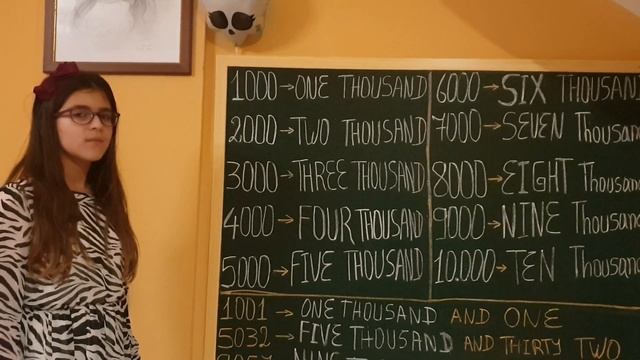 1000→ONE THOUSAND
2000→TWO THOUSAND
3000→THREE THOUSAND
4000→FOUR THOUSAND
5000→FIVE THOUSAND
6000→SIX THOUSAN
7000→SEVEN Thousan
8000→EIGHT Thousan
9000→NINE Thousan
10.000→TEN Thousan
1001→ONE THOUSAND AND ONE
5032→FIVE THOUSAND AND THIRTY TWO